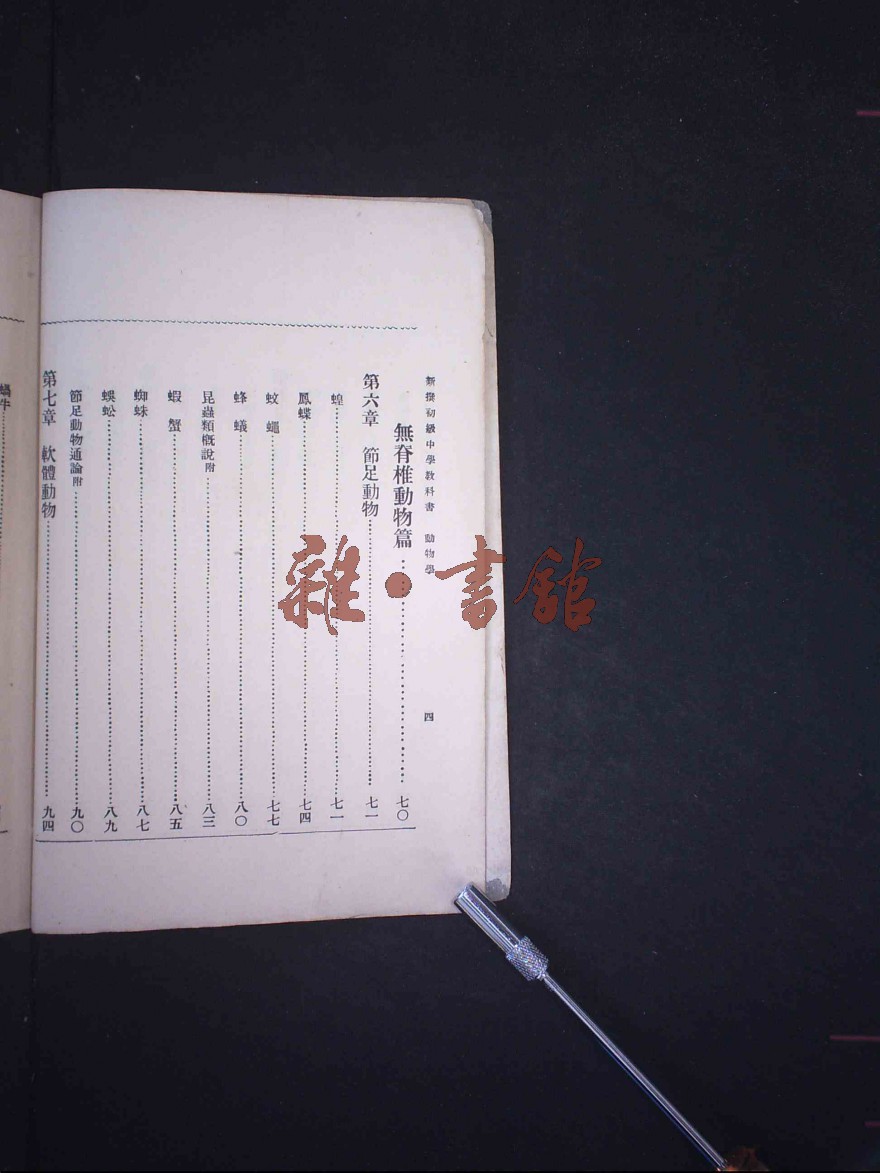 新撰初級中學教科書　動物學　四
無脊椎動物篇……七〇
第六章　節足動物……七一
蝗……七一
鳳蝶……七四
蚊　蠅……七七
蜂　蟻……八〇
昆蟲類概說附……八三
蝦　蟹……八五
蜘蛛……八七
蜈蚣……八九
節足動物通論附……九〇
第七章　軟體動物……九四
蝸牛……
雜·書館